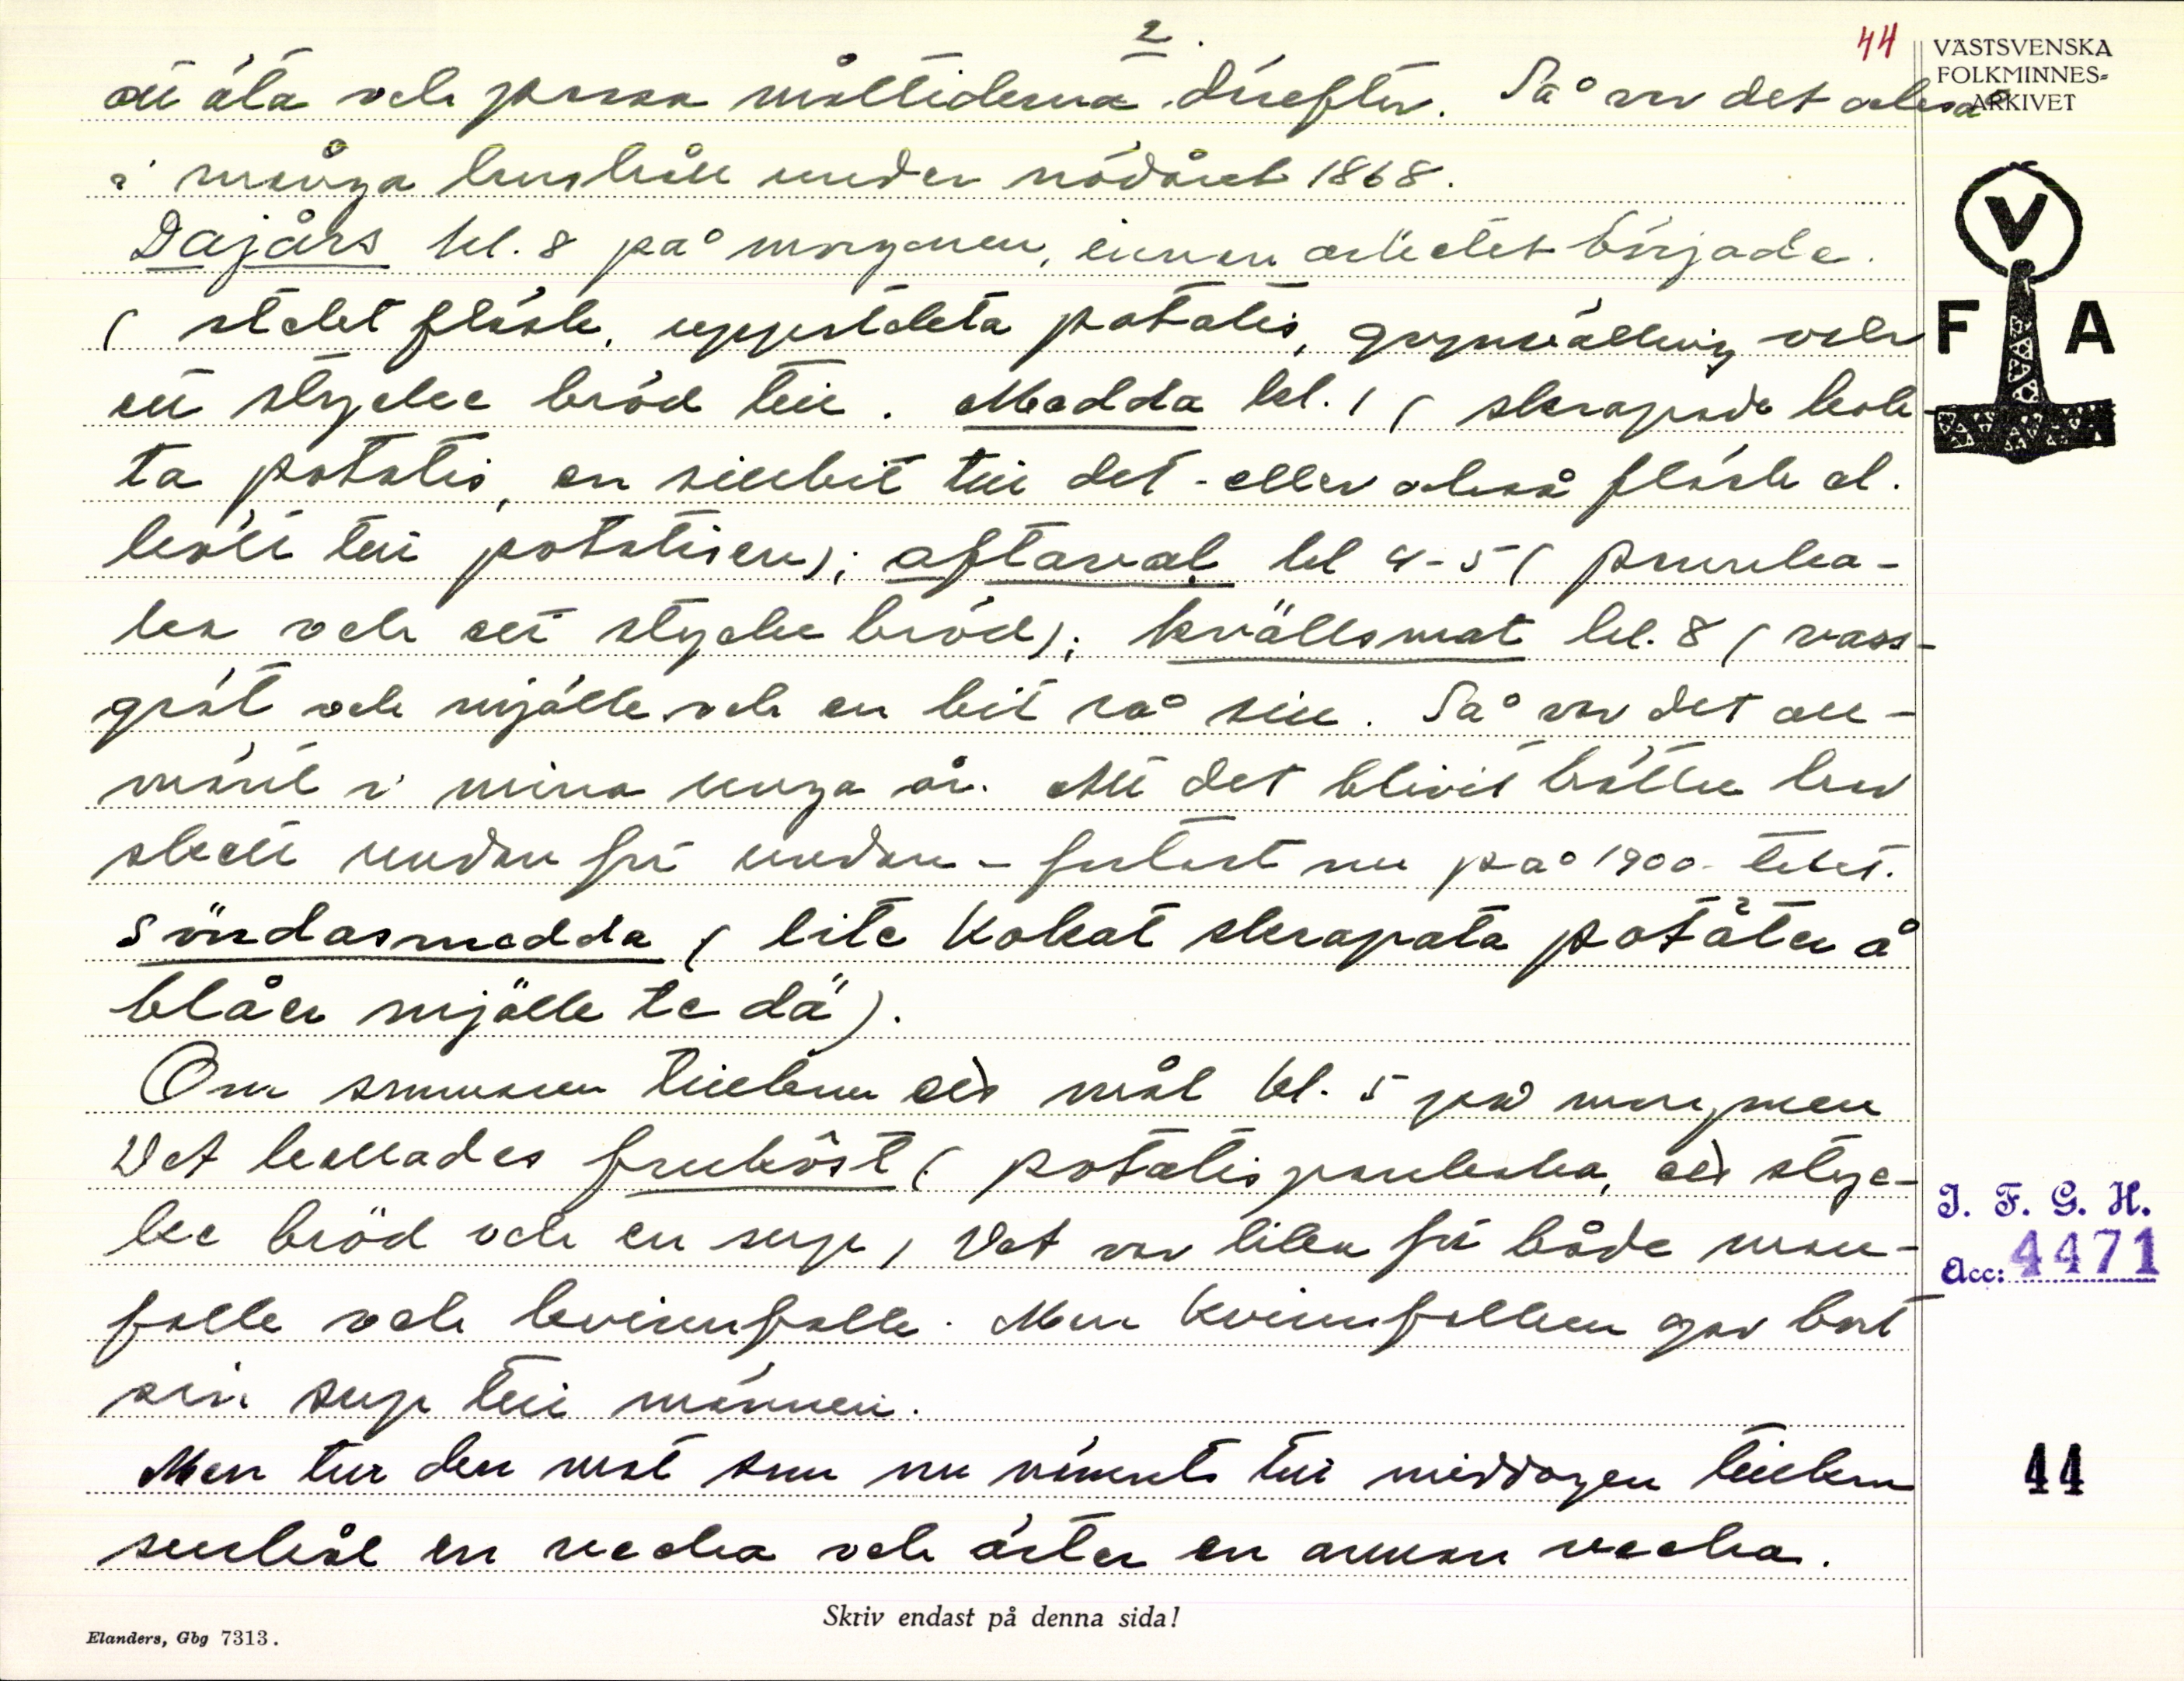 2.
44
VÄSTSVENSKA
FOLKMINNES=
ARKIVET
att äta och passa måltiderna därefter. Så var det också
i många hushåll under nödåret 1868.
Dajårs kl. 8 på morgonen, innan arbetet började.
( stekt fläsk, uppstekta potatis, grynvälling och
ett stycke bröd till. Medda kl. 1 ( skrapade kok-
ta potatis, en sillbit till det - eller också fläsk el.
kött till potatisen); aftaral kl 4-5 ( pannka-
ka och ett stycke bröd); kvällsmat kl. 8 ( vass-
gröt och mjölk och en bit rå sill. Så var det all-
mänt i mina unga år. Att det blivit bättre har
skett undan för undan - fortast nu på 1900-talet.
Söndasmedda ( lite kokat skrapata potåter å
blåer mjölk te dä).
Om sommaren tillkom ett mål kl. 5 på morgonen
Det kallades frukôst ( potatispankaka, ett styc-
ke bröd och en sup, Det var lika för både man-
folk och kvinnfolk. Men kvinnfolken gav bort
sin sup till männen.
Men tur den mat som nu nämnts till middagen tillkom
surkål en vecka och ärter en annan vecka.
V
F A
I. F. G. H.
Acc: 4471
44
Skriv endast på denna sida!
Elanders, Gbg 7313.